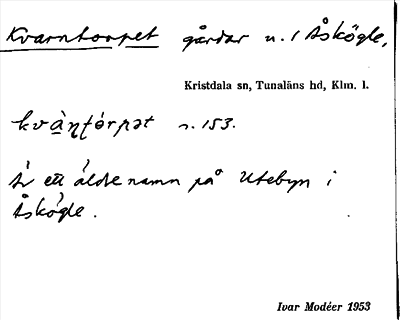 Kvarntorpet gårdar u. / Åskögle,
Kristdala sn, Tunaläns hd, Klm. l.
kvà̱ɳʈórpət s. 153.
Är ett äldre namn på Utebyn i
Åskögle.
Ivar Modéer 1953